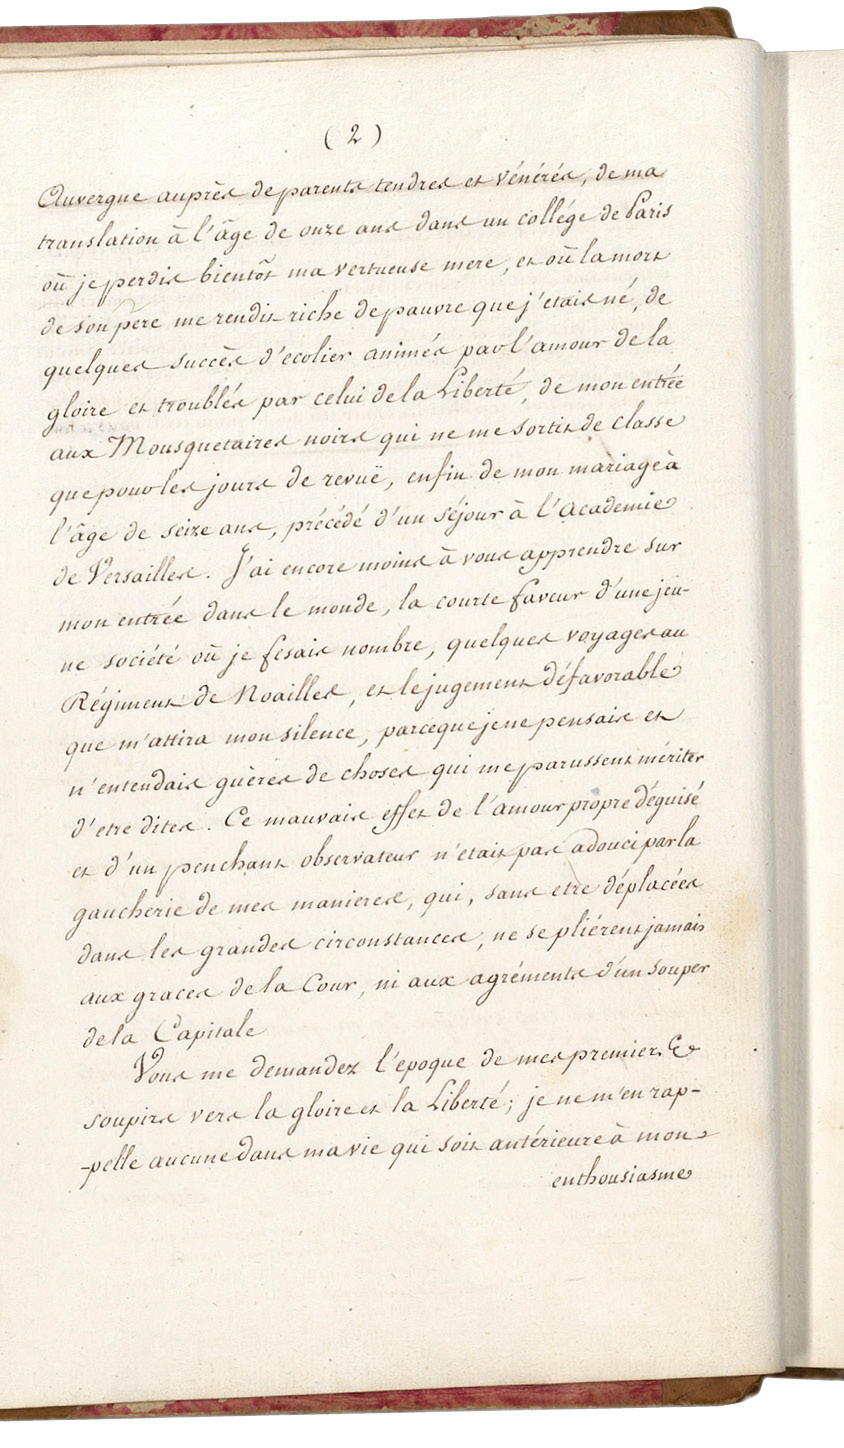 ( 2 )
Auvergne auprès de parents tendres et vénérés, de ma
translation à l'âge de onze ans dans un collége de Paris
où je perdis bientôt ma vertueuse mere, et où la mort
de son père me rendit riche de pauvre que j'etais né, de
quelques succès d'ecolier animés par l'amour de la
gloire et troublés par celui de la Liberté, de mon entrée
aux Mousquetaires noirs qui ne me sortit de classe
que pour les jours de revuë, enfin de mon mariage à
l'âge de seize ans, précédé d'un séjour à l'Academie
de Versailles. J'ai encore moins à vous apprendre sur
mon entrée dans le monde, la courte faveur d'une jeu-
ne société où je fesais nombre, quelques voyages au
Régiment de Noailles, et le jugement défavorable
que m'attira mon silence, parceque je ne pensais et
n'entendais guères de choses qui me parussent mériter
d'etre dites. Ce mauvais effet de l'amour propre déguisé
et d'un penchant observateur n'était pas adouci par la
gaucherie de mes manieres, qui, sans etre déplacées
dans les grandes circonstances, ne se pliérent jamais
aux graces de la Cour, ni aux agréments d'un souper
de la Capitale
Vous me demandez l'epoque de mes premiers
soupirs vers la gloire et la Liberté; je ne m'en rap-
-pelle aucune dans ma vie qui soit antérieure à mon
enthousiasme